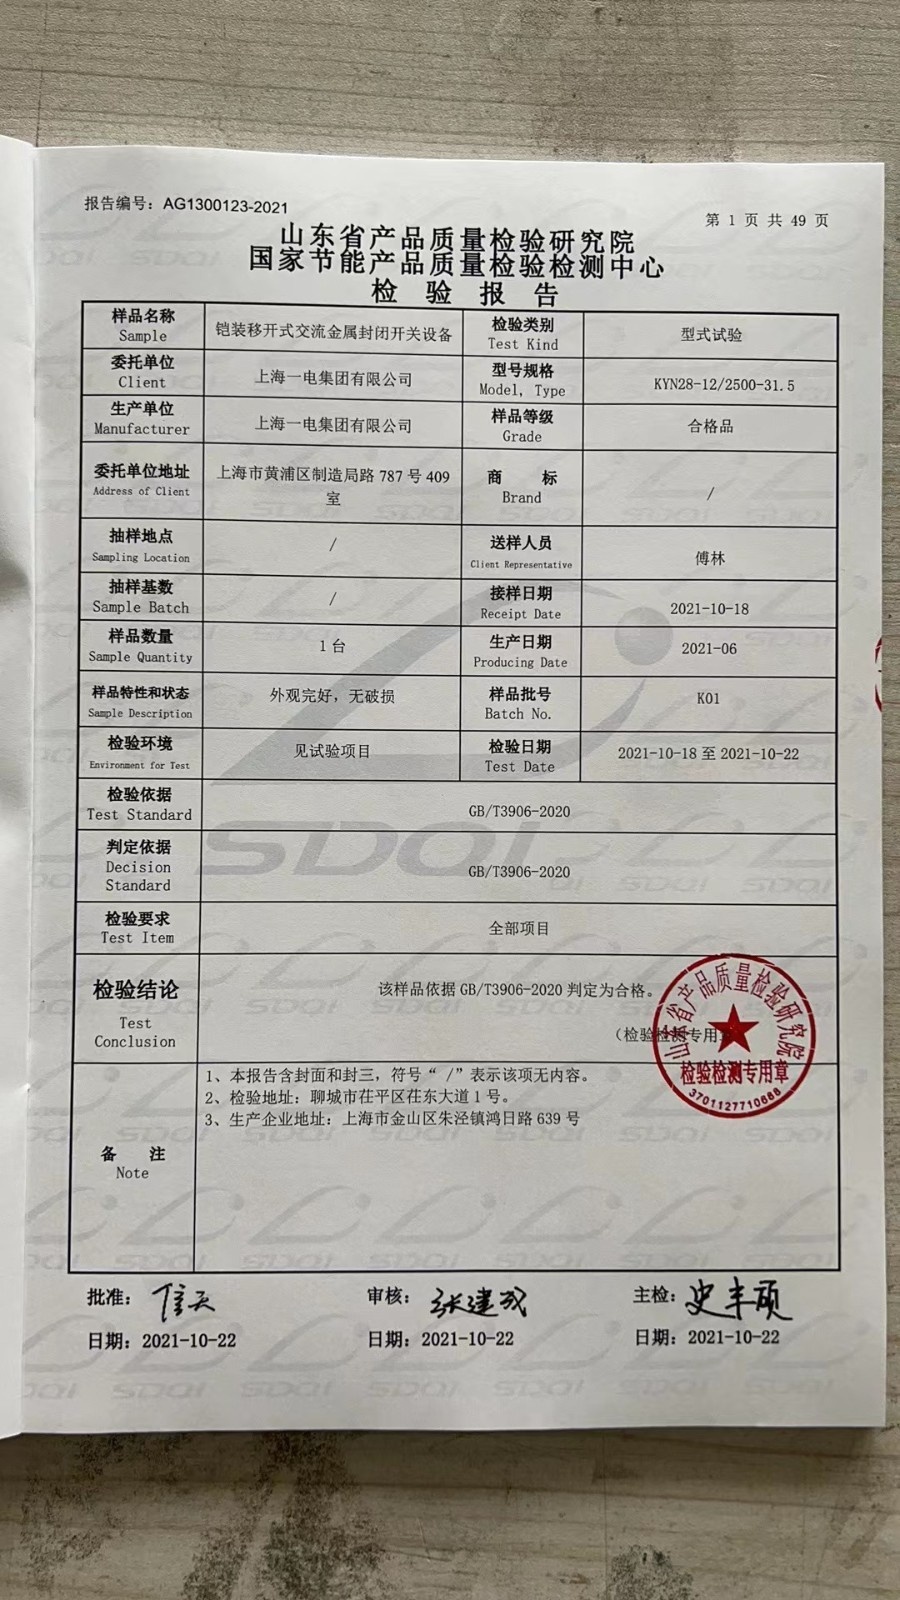 报告编号：AG1300123-2021
第 1 页 共 49 页
山东省产品质量检验研究院
国家节能产品质量检验检测中心
检 验 报 告
样品名称
Sample
铠装移开式交流金属封闭开关设备
检验类别
Test Kind
型式试验
委托单位
Client
上海一电集团有限公司
型号规格
Model, Type
KYN28-12/2500-31.5
生产单位
Manufacturer
上海一电集团有限公司
样品等级
Grade
合格品
委托单位地址
Address of Client
上海市黄浦区制造局路 787 号 409
室
商 标
Brand
/
抽样地点
Sampling Location
/
送样人员
Client Representative
傅林
抽样基数
Sample Batch
/
接样日期
Receipt Date
2021-10-18
样品数量
Sample Quantity
1 台
生产日期
Producing Date
2021-06
样品特性和状态
Sample Description
外观完好，无破损
样品批号
Batch No.
K01
检验环境
Environment for Test
见试验项目
检验日期
Test Date
2021-10-18 至 2021-10-22
检验依据
Test Standard
GB/T3906-2020
判定依据
Decision
Standard
GB/T3906-2020
检验要求
Test Item
全部项目
检验结论
Test
Conclusion
该样品依据 GB/T3906-2020 判定为合格。
（检验检测专用章
山东省产品质量检验研究院
检验检测专用章
3701127710688
备 注
Note
1、本报告含封面和封三，符号“ /”表示该项无内容。
2、检验地址：聊城市茌平区茌东大道 1 号。
3、生产企业地址：上海市金山区朱泾镇鸿日路 639 号
SDQI
批准：
审核：张建成
主检：史丰硕
日期：2021-10-22
日期：2021-10-22
日期：2021-10-22